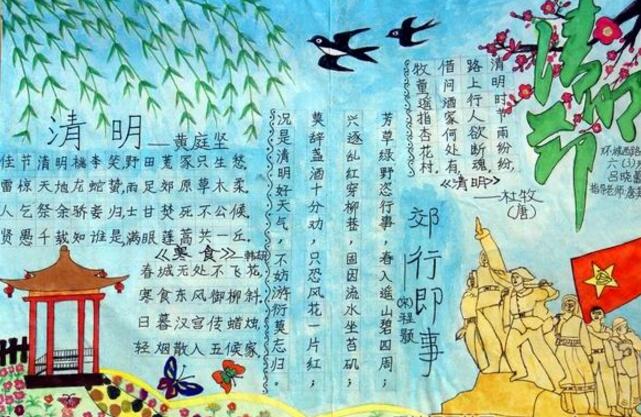 清明节
六(3)
指导老师:
清明时节雨纷纷,
路上行人欲断魂。
借问酒家何处有,
牧童遥指杏花村。
《清明》
——杜牧
(唐)
郊行即事
(宋)程颢
芳草绿野恣行事,春入遥山碧四周;
兴逐乱红穿柳巷,困因流水坐苔矶;
莫辞盏酒十分劝,只恐风花一片红;
况是清明好天气,不妨游衍莫忘归。
清明——黄庭坚
佳节清明桃李笑,野田荒冢只生愁。
雷惊天地龙蛇蛰,雨足郊原草木柔。
人乞祭余骄妾归士甘焚死不公侯。
贤愚千载知谁是,满眼蓬蒿共一丘。
《寒食》——韩翃
春城无处不飞花,
寒食东风御柳斜。
日暮汉宫传蜡烛,
轻烟散入五候家